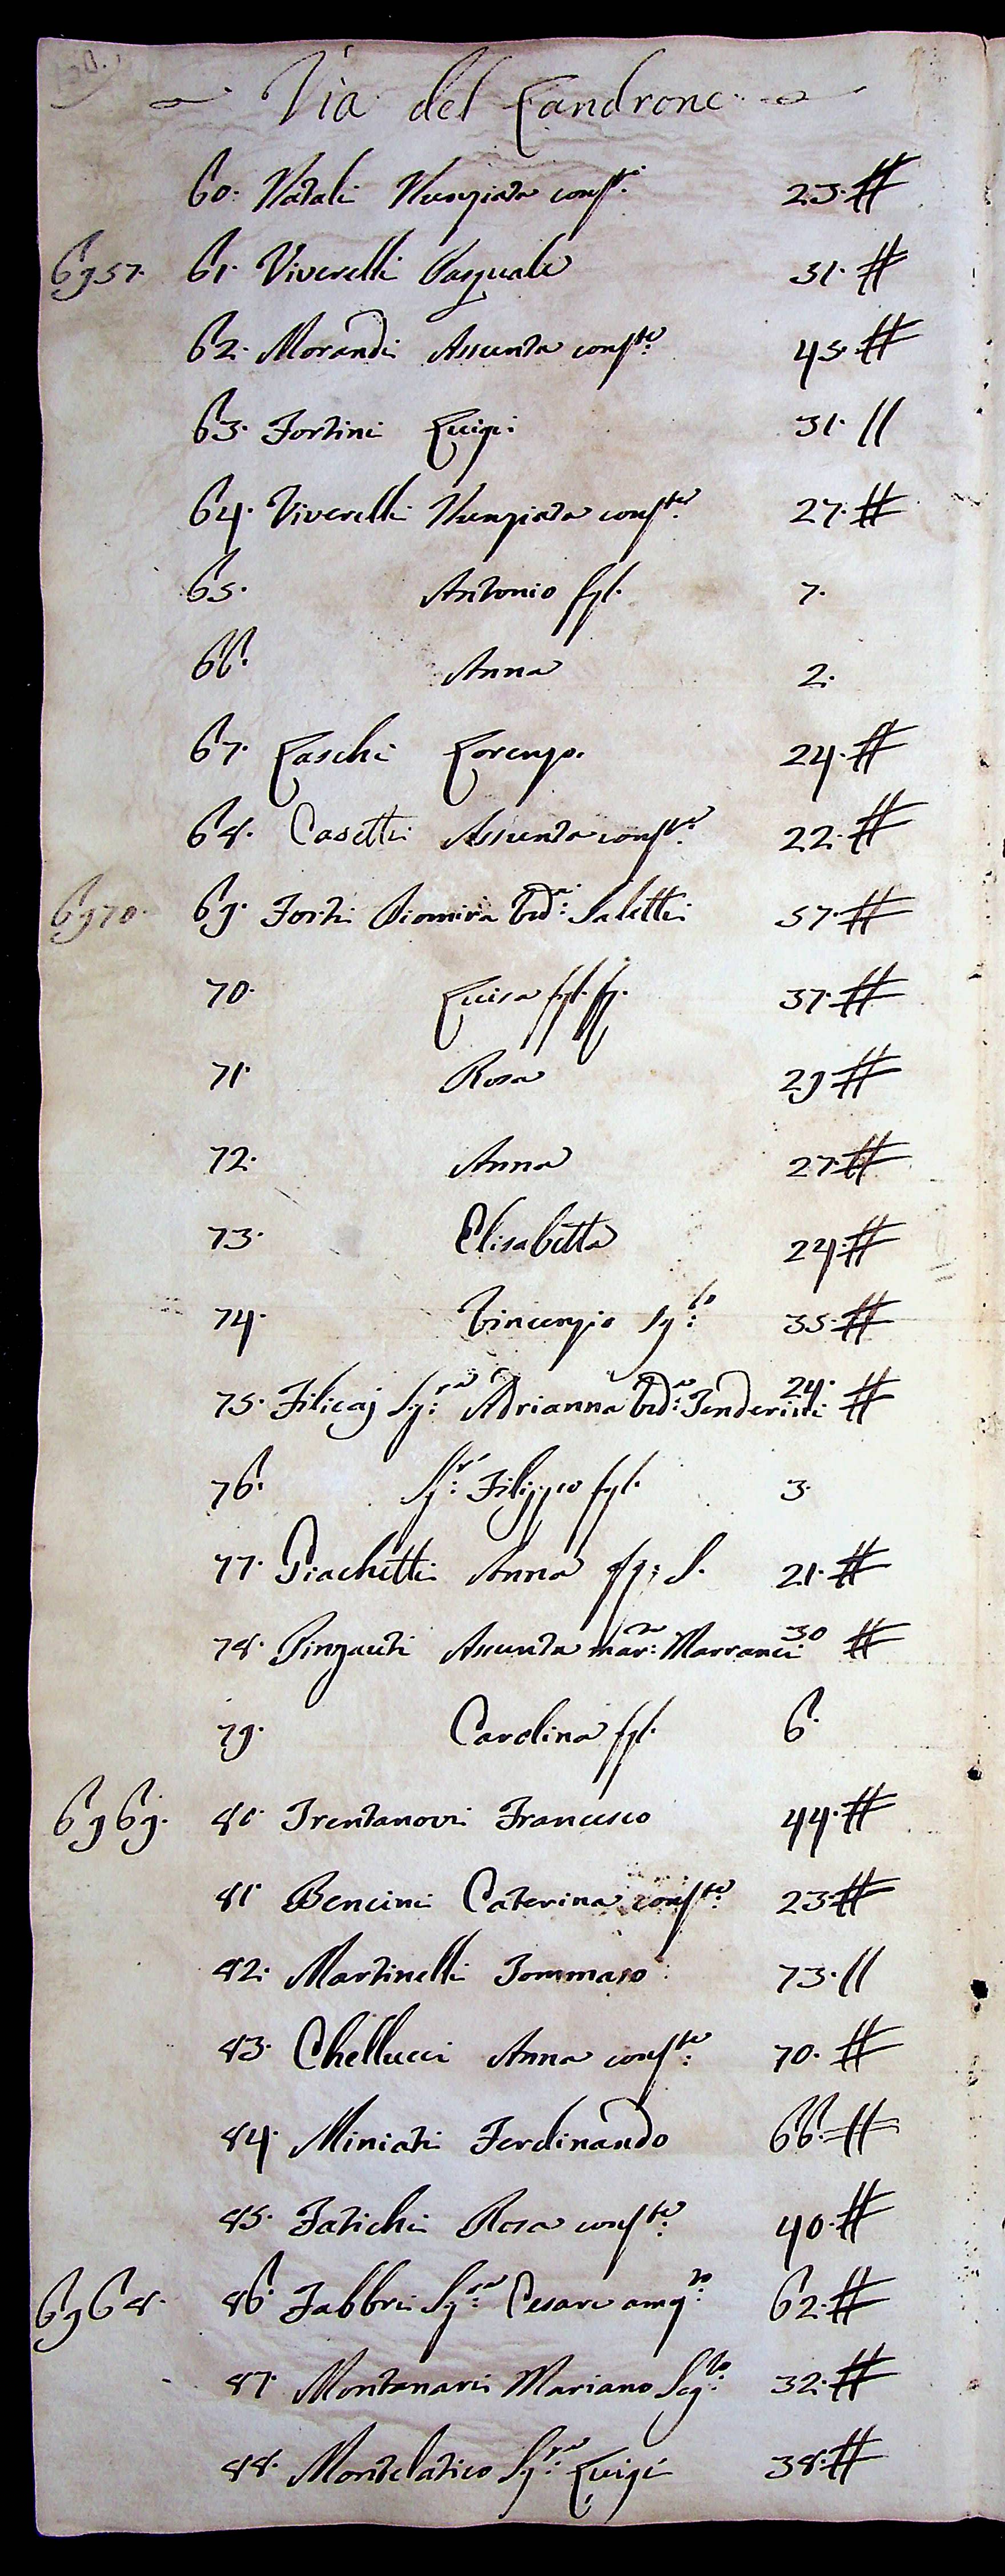 Via del Landrone
60. Natali Nunziata conste. 23. #
6957. 61. Viverelli Pasquale 31. #
62. Morandi Assunta conste. 45. #
63. Fortini Luigi 31. //
64. Viverelli Nunziata conste. 27. #
65. Antonio fgl. 7.
66. Anna 2.
67. Laschi Lorenzo. 24. #
68. Casetti Assunta conste. 22. #
6970. 69. Forti Diomira Vda. Saletti 57. #
70. Luisa fgl. fg. 37. #
71. Rosa 29 #
72. Anna 27. #
73. Elisabetta 24. #
74. Vincenzio Sgto. 35. #
75. Filicaj Sgra. Adrianna Vda. Tenderini 24. #
76. Sgr. Filippo fgl. 3.
77. Piachetti Anna S. 21. #
78. Pinzauti Assunta mar: Marranci 30 #
79. Carolina fgl. 6.
6969. 80. Trentanovi Francesco 44. #
81 Bencini Caterina conste. 23 #
82. Martinelli Tommaso 73. //
83. Chellucci Anna conste. 70. #
84. Miniati Ferdinando 66. #
85. Fatichi Rosa conste. 40. #
6968. 86. Fabbri Sgre. Cesare amgo. 62. #
87. Montanari Mariano Scgto. 32. #
88. Montelatico Sgre. Luigi 38. #